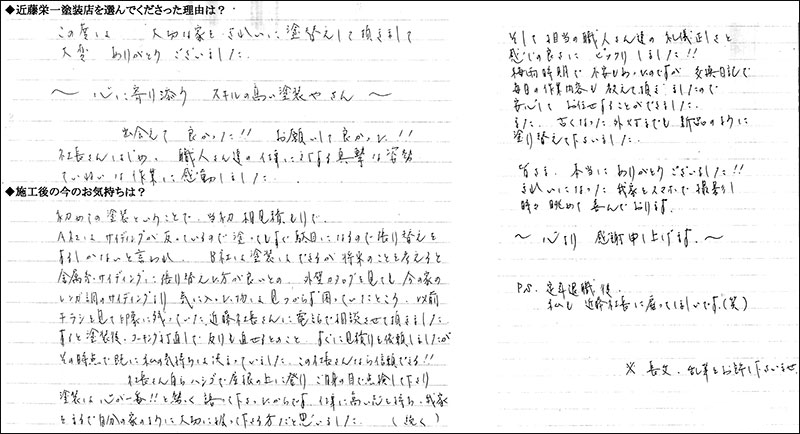 ◆近藤栄一塗装店を選んでくださった理由は？
この度は 大切な家を きれいに塗替えして頂きまして
大変 ありがとうございました。
〜 心に寄り添う スキルの高い塗装やさん 〜
出会えて 良かった!! お願いして良かった!!
社長さんはじめ、職人さん達の仕事に対する真摯な姿勢
ていねいな作業に感動しました。
◆施工後の今のお気持ちは？
初めての塗装ということで、当初、相見積もりで
A社は、サイディングが反っているので塗ってもすぐ駄目になるので張り替えを
するしかないと言われ、B社は塗装はできるが将来のことを考えると
金属系サイディングに張り替えた方が良いとの、外壁カタログを見ても、今の家の
レンガ調のサイディングより 気に入った物は見つからず困っていたところ、以前
チラシを見て印象に残っていた近藤社長さんに電話で相談させて頂きました
すると塗装後、コーキング打直しで反りも直せるとのこと すぐに見積りを依頼しましたが
その時点で既に私の気持ちは決っていました。この社長さんなら信頼できる!!
社長さん自らハシゴで屋根の上に登り ご自身の目で点検して下さり
塗装は心が一番!!と熱く語って下さったからです。仕事に高い志を持ち、我家
をまるで自分の家のように大切に扱って下さる方だと思いました。 (続く)
そして担当の職人さん達の礼儀正しさと
感じの良さに ビックリしました!!
梅雨時期で不安もあったのですが 交換日記で
毎日の作業内容も教えて頂きましたので
安心してお任せすることができました。
また、古くなった外壁までも新品のように
塗り替えて下さいました。
皆さま、本当にありがとうございました!!
きれいになった我家をスマホで撮影し
時々眺めて喜んでおります。
〜 心より 感謝申し上げます。〜
P.S. 定年退職後、
私も近藤社長に雇ってほしいです(笑)
※ 長文、乱筆をお許し下さいませ